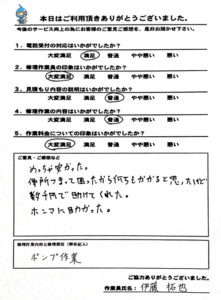 本日はご利用頂きありがとうございました。
今後のサービス向上の為にお客様のご意見ご感想を、是非お聞かせ下さい。
1. 電話受付の対応はいかがでしたか?
大変満足 満足 普通 やや悪い 悪い
2. 修理作業員の印象はいかがでしたか?
大変満足 満足 普通 やや悪い 悪い
3. 見積もり内容の説明はいかがでしたか?
大変満足 満足 普通 やや悪い 悪い
4. 修理作業の内容はいかがでしたか?
大変満足 満足 普通 やや悪い 悪い
5. 作業料金についての印象はいかがでしたか?
大変満足 満足 普通 やや悪い 悪い
ご意見・ご感想など
めっちゃ安かった。
便所つまって困ったから何千もかかると思ったけど
数千円で助けてくれた。
ホンマに助かった。
修理作業内容と修理費用(弊社記入)
ポンプ作業
ご協力ありがとうございました。
作業員氏名: 伊藤 拓也